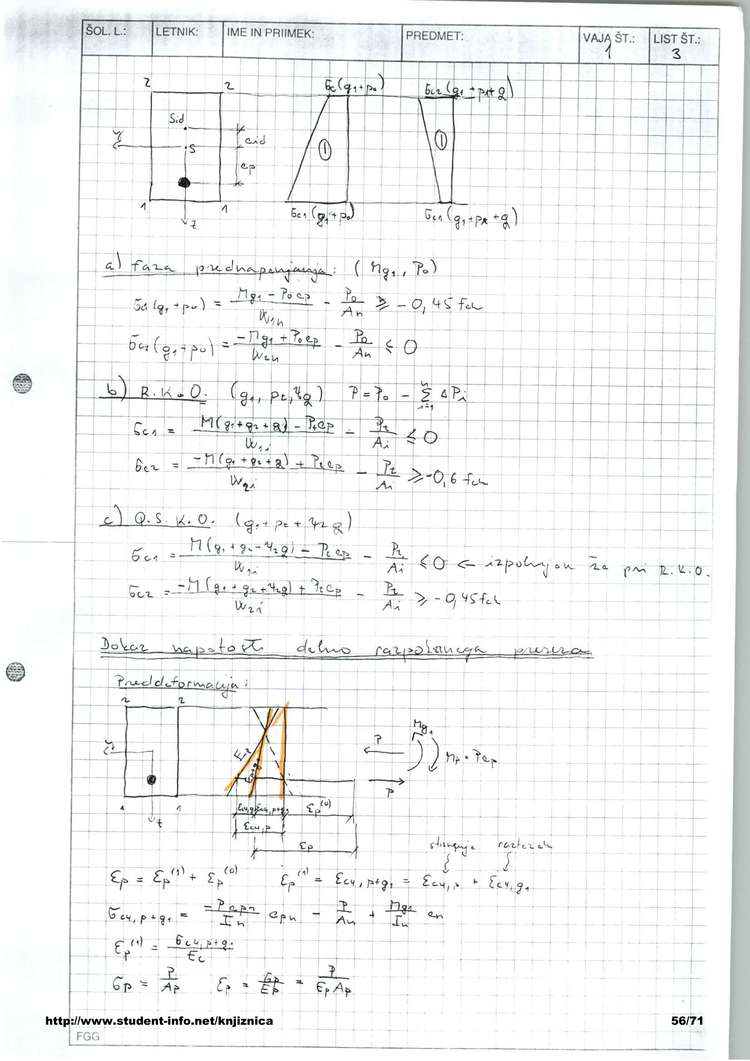 ŠOL. L.: LETNIK: IME IN PRIIMEK: PREDMET: VAJA ŠT.: 1 LIST ŠT.: 3
2 2 σc2(g1+p0) σc2(g1+pt+q)
Sid
y S eid
ep
1 1 z σc1(g1+p0) σc1(g1+pt+q)
a) faza prednapenjanja: (Mg1, P0)
σc1(g1+p0) = (Mg1 - P0ep)/W1n - P0/An ≥ -0,45 fck
σc2(g1+p0) = (-Mg1 + P0ep)/W2n - P0/An ≤ 0
b) R.K.O. (g1, pt, ψq) P = P0 - Σ ΔPi
σc1 = (M(g1+g2+q) - Ptep)/W1i - Pt/Ai ≤ 0
σc2 = (-M(g1+g2+q) + Ptep)/W2i - Pt/Ai ≥ -0,6 fck
c) Q.S.K.O. (g1 + pt + ψ2 q)
σc1 = (M(g1+g2-ψ2q) - Ptep)/W1i - Pt/Ai ≤ 0 ← izpolnjen že pri R.K.O.
σc2 = (-M(g1+g2+ψ2q) + Ptep)/W2i - Pt/Ai ≥ -0,45 fck
Dokaz napetosti delno razpokanega prereza
Preddeformacija:
2 2
y P Mg1 Mp = P ep
1 1 z P
εp(0)
εc4,p
εp
εp = εp(1) + εp(0) εp(1) = εc4,p+g1 = εc4,p + εc4,g1
σc4,p+g1 = (-P epn)/In epn - P/An + Mg1/In en
εp(1) = σc4,p+g1/Ec
σp = P/Ap εp = σp/Ep = P/(Ep Ap)
http://www.student-info.net/knjiznica 56/71
FGG